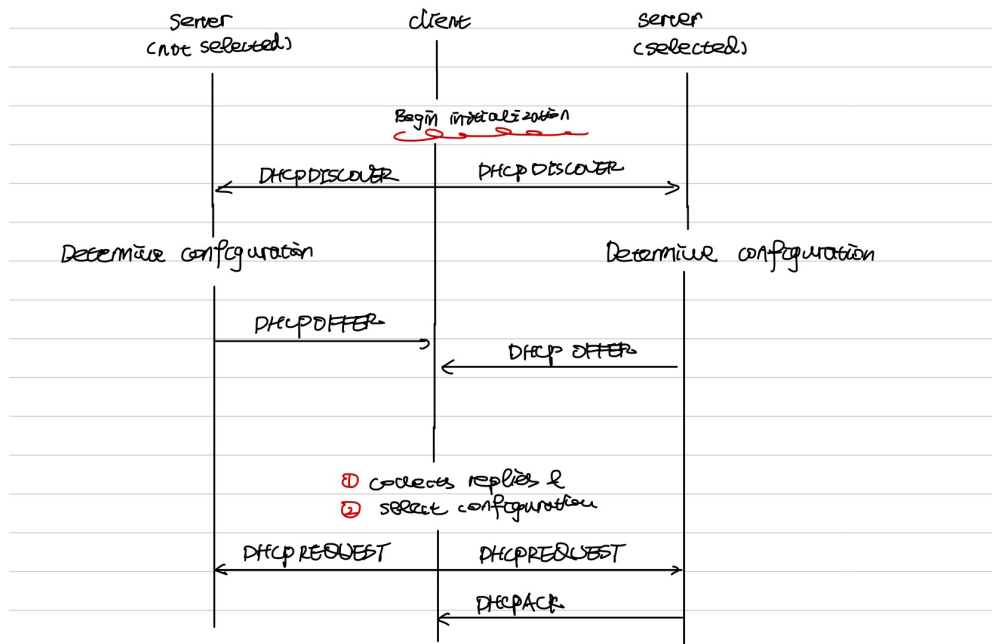 Server
(not selected)
client
server
(selected)
Begin initialization
DHCPDISCOVER
DHCPDISCOVER
Determine configuration
Determine configuration
DHCPOFFER
DHCP OFFER
① collects replies &
② select configuration
DHCPREQUEST
DHCPREQUEST
DHCPACK